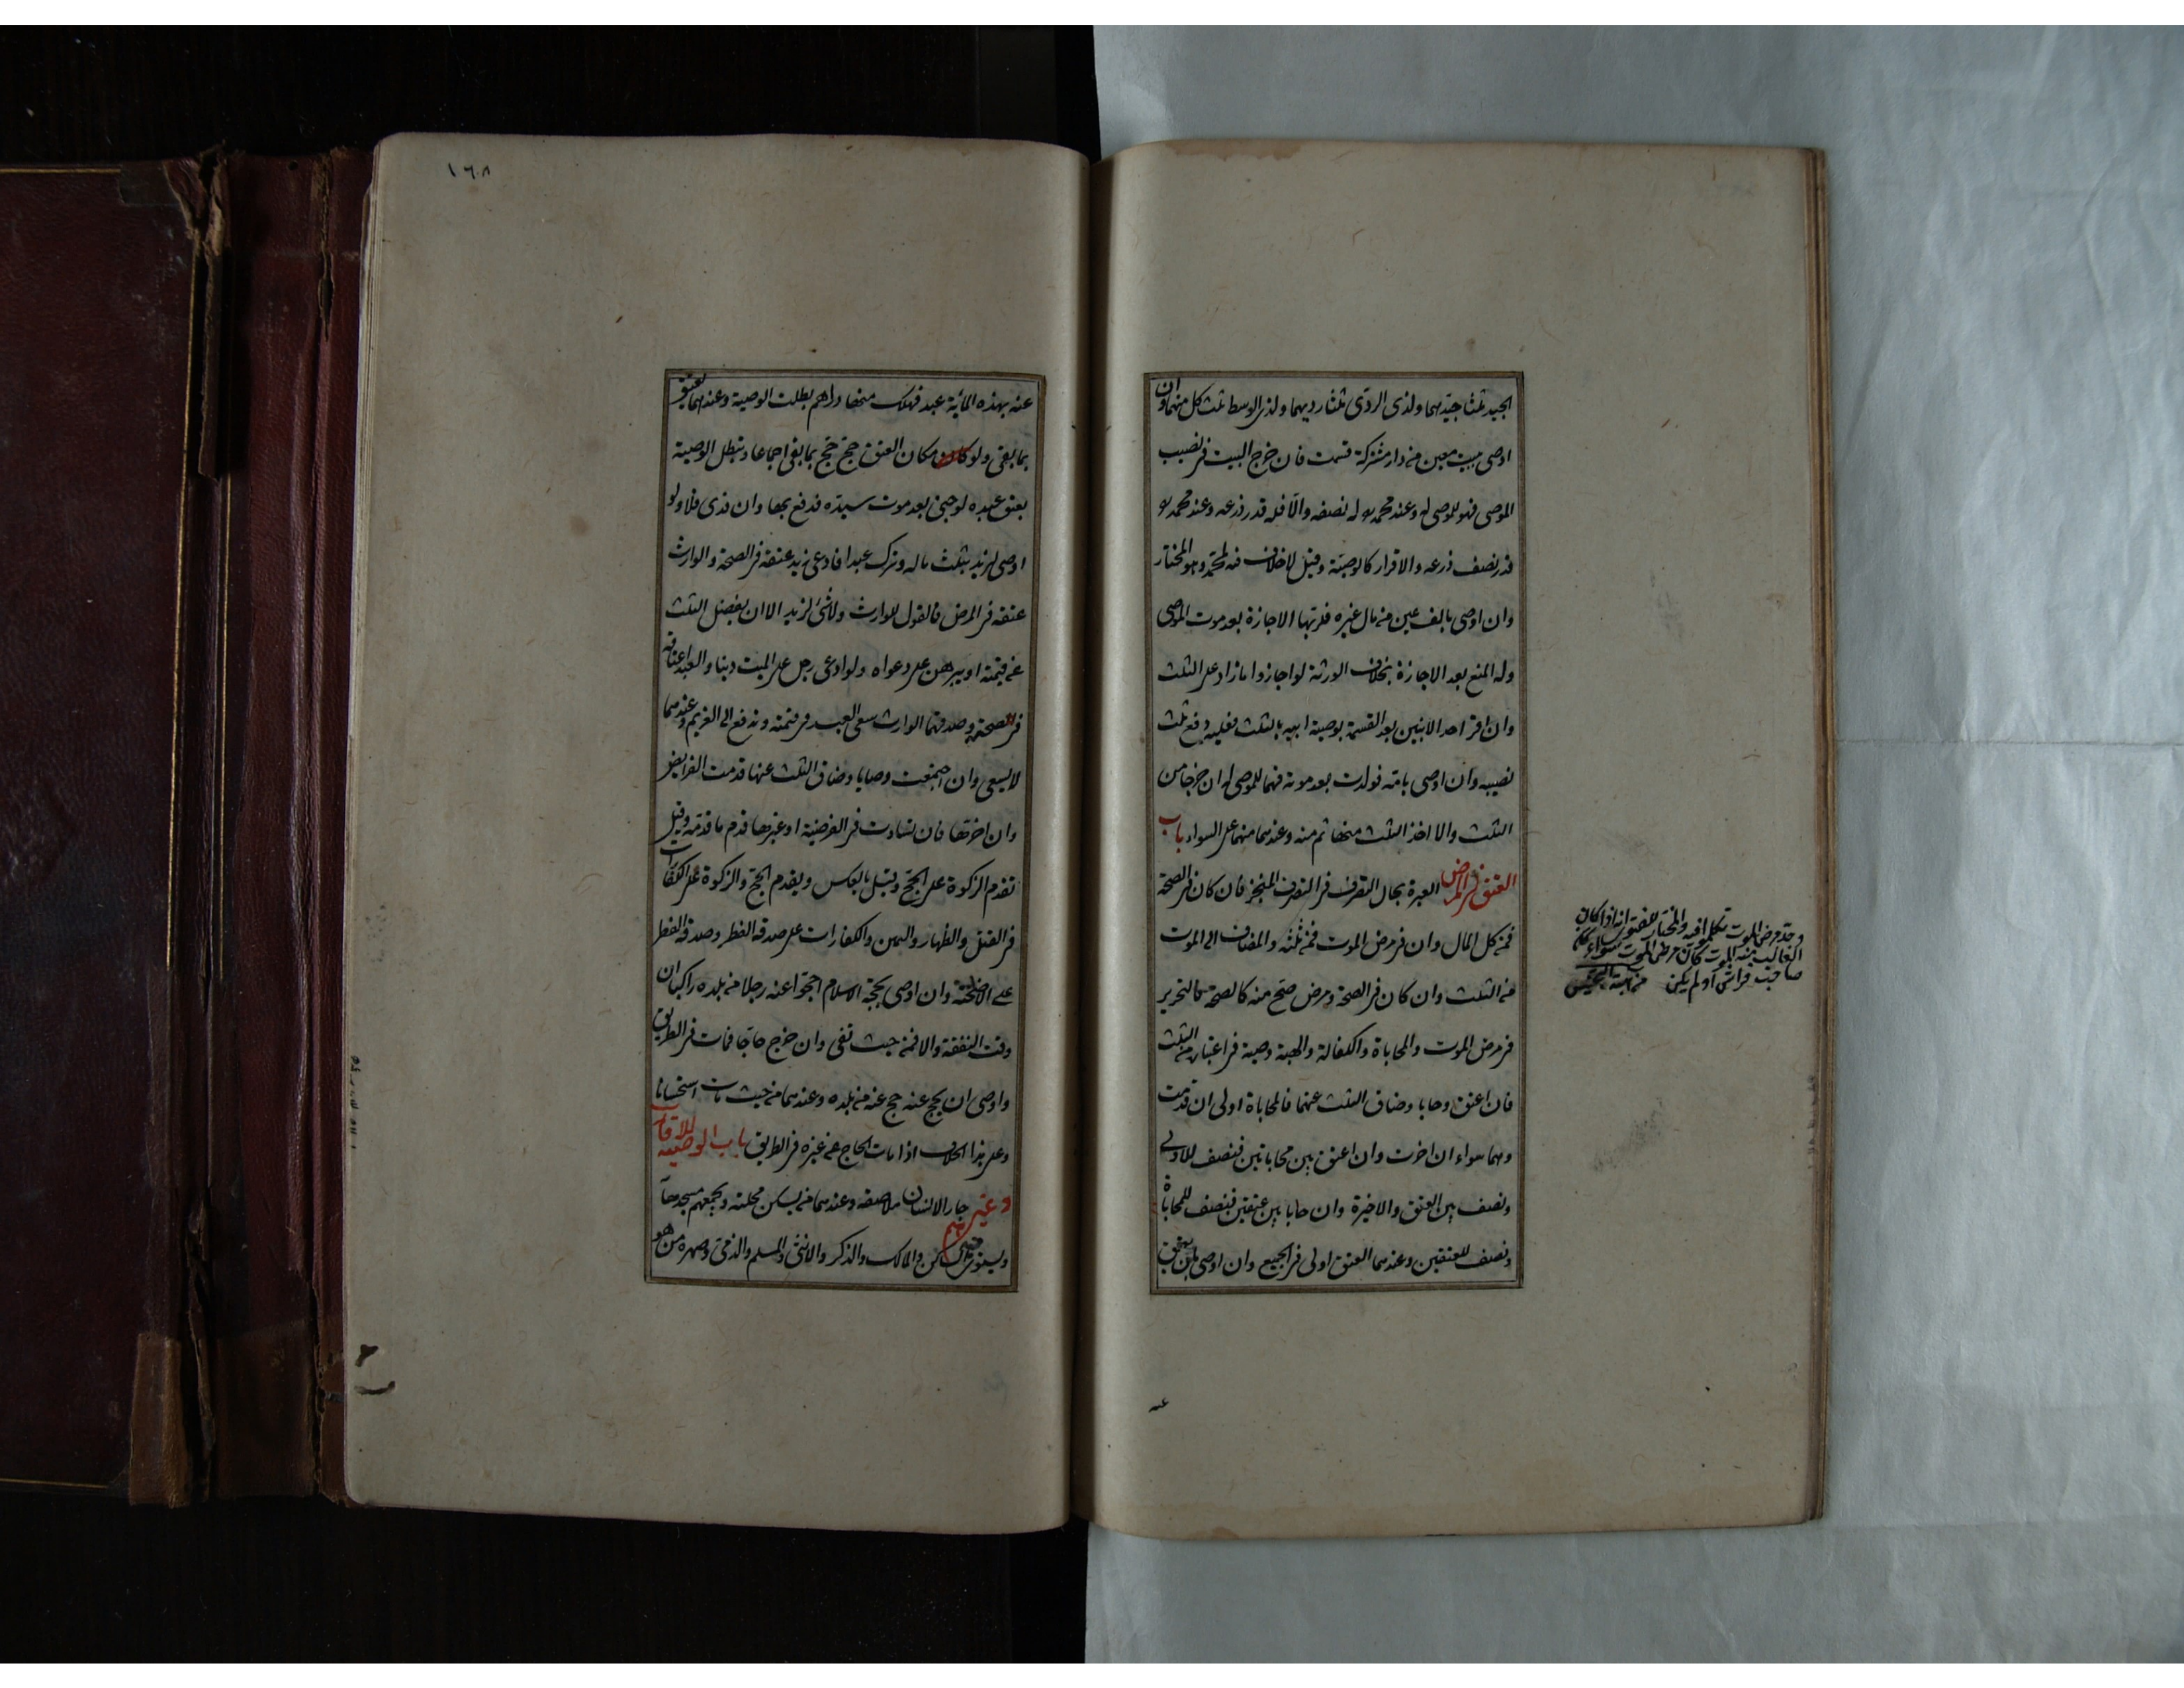 الجيد ثلثا جيدهما ولذى الردى ثلثا رديهما ولذى الوسط ثلث كل منهما وان
اوصى ببيت معين من دار مشتركة قسمت فان خرج البيت فى نصيب
الموصى فهو للموصى له وعند محمد له نصفه والا فله قدر ذرعه وعند محمد
قدر نصف ذرعه والاقرار كالوصية وقيل لا خلاف فيه لمحمد وهو المختار
وان اوصى بالف عين من مال غيره فلربها الاجازة بعد موت الموصى
وله المنع بعد الاجازة بخلاف الورثة لو اجازوا ما زاد على الثلث
وان اقر احد الابنين بعد القسمة بوصية ابيه بالثلث فعليه دفع ثلث
نصيبه وان اوصى بامة فولدت بعد موته فهما للموصى له ان خرجا من
الثلث والا اخذ الثلث منها ثم منه وعندهما منهما على السواء باب
العتق فى المرض العبرة بحال التصرف فى التصرف المنجز فان كان فى الصحة
فمن كل المال وان فى مرض الموت فمن ثلثه والمضاف الى الموت
من الثلث وان كان فى الصحة ومرض صح منه كالصحة كالتحرير
فى مرض الموت والمحاباة والكفالة والهبة وصية فى اعتباره من الثلث
فان اعتق وحابا وضاق الثلث عنهما فالمحاباة اولى ان قدمت
وهما سواء ان اخرت وان اعتق بين محاباتين فنصف للاولى
ونصف بين العتق والاخيرة وان حابا بين عتقين فنصف للمحاباة
ونصف للعتقين وعندهما العتق اولى فى الجميع وان اوصى بان يعتق
عنه
وحد مرض الموت تكلموا فيه والمختار للفتوى انه اذا كان
الغالب منه الموت كان مرض الموت سواء كان
صاحب فراش او لم يكن
١٦٨
عنه بهذه المائة عبد فهلك منها دراهم بطلت الوصية وعندهما يعتق
بما بقى ولو كان مكان العتق حج حج بما بقى اجماعا وتبطل الوصية
بعتق عبده لو جنى بعد موت سيده فدفع بها وان فدى فلا ولو
اوصى لزيد بثلث ماله وترك عبدا فادعى زيد عتقه فى الصحة والوارث
عتقه فى المرض فالقول للوارث ولا شئ لزيد الا ان يفضل الثلث
عن قيمته او يبرهن على دعواه ولو ادعى رجل على الميت دينا والعبد اعتاقه
فى الصحة وصدقهما الوارث سعى العبد فى قيمته وتدفع الى الغريم وعندهما
لا يسعى وان اجتمعت وصايا وضاق الثلث عنها قدمت الفرايض
وان اخرتها فان تساوت فى الفرضية او غيرها قدم ما قدمه وقيل
تقدم الزكوة على الحج وقيل بالعكس ويقدم الحج والزكوة على الكفارات
فى القتل والظهار واليمين والكفارات على صدقة الفطر وصدقة الفطر
على الاضحية وان اوصى بحجة الاسلام احجوا عنه رجلا من بلده راكبا ان
وفت النفقة والا فمن حيث تفى وان خرج حاجا فمات فى الطريق
واوصى ان يحج عنه حج عنه من بلده وعندهما من حيث مات استحسانا
وعلى هذا الخلاف اذا مات الحاج عن غيره فى الطريق باب الوصية للاقارب
وغيرهم جار الانسان ملاصقه وعندهما من يسكن محلته ويجمعهم مسجدها
ويستوى فيه الساكن والمالك والذكر والانثى والمسلم والذمى وصهره من هو